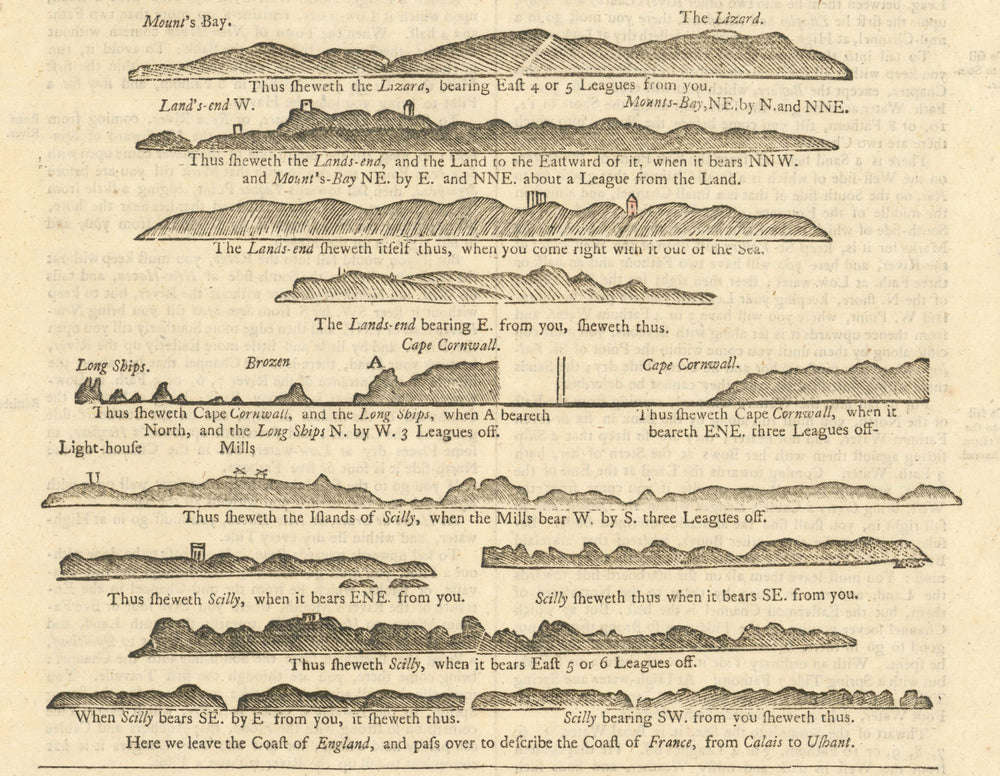 Mount's Bay. The Lizard.
Thus ſheweth the Lizard, bearing Eaſt 4 or 5 Leagues from you.
Land's-end W. Mounts-Bay, NE. by N. and NNE.
Thus ſheweth the Lands-end, and the Land to the Eaſtward of it, when it bears NNW.
and Mount's-Bay NE. by E. and NNE. about a League from the Land.
The Lands-end ſheweth itſelf thus, when you come right with it out of the Sea.
The Lands-end bearing E. from you, ſheweth thus.
Long Ships. Brozen A Cape Cornwall. Cape Cornwall.
Thus ſheweth Cape Cornwall, and the Long Ships, when A beareth
North, and the Long Ships N. by W. 3 Leagues off.
Thus ſheweth Cape Cornwall, when it
beareth ENE. three Leagues off-
Light-houſe Mills
Thus ſheweth the Iſlands of Scilly, when the Mills bear W. by S. three Leagues off.
Thus ſheweth Scilly, when it bears ENE. from you.
Scilly ſheweth thus when it bears SE. from you.
Thus ſheweth Scilly, when it bears Eaſt 5 or 6 Leagues off.
When Scilly bears SE. by E from you, it ſheweth thus.
Scilly bearing SW. from you ſheweth thus.
Here we leave the Coaſt of England, and paſs over to deſcribe the Coaſt of France, from Calais to Uſhant.